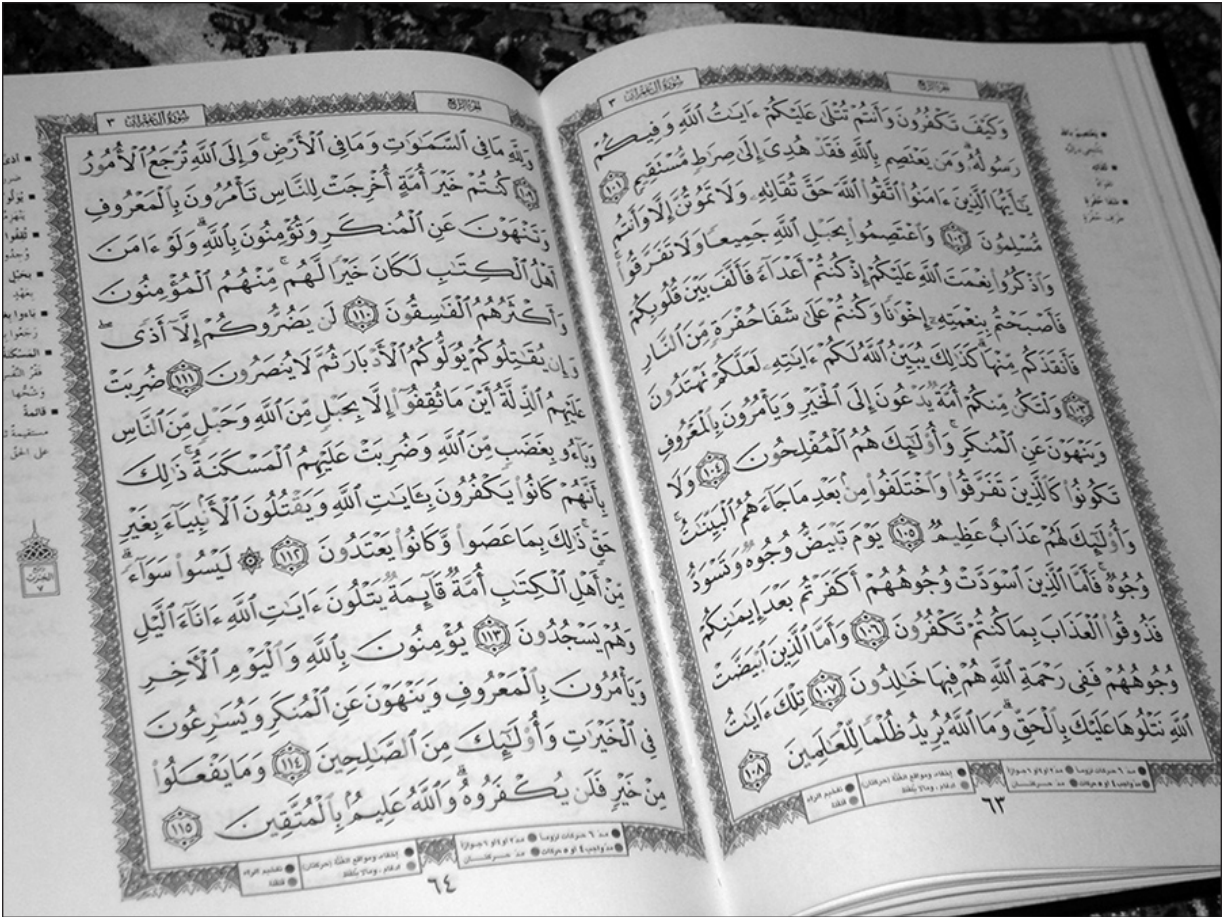 سُورَةُ آلِ عِمْرَان ٣
الجزء الرابع
وَكَيْفَ تَكْفُرُونَ وَأَنتُمْ تُتْلَىٰ عَلَيْكُمْ ءَايَٰتُ ٱللَّهِ وَفِيكُمْ
رَسُولُهُۥ وَمَن يَعْتَصِم بِٱللَّهِ فَقَدْ هُدِىَ إِلَىٰ صِرَٰطٍ مُّسْتَقِيمٍ ١٠١
يَٰٓأَيُّهَا ٱلَّذِينَ ءَامَنُوا۟ ٱتَّقُوا۟ ٱللَّهَ حَقَّ تُقَاتِهِۦ وَلَا تَمُوتُنَّ إِلَّا وَأَنتُم
مُّسْلِمُونَ ١٠٢ وَٱعْتَصِمُوا۟ بِحَبْلِ ٱللَّهِ جَمِيعًا وَلَا تَفَرَّقُوا۟ ۚ
وَٱذْكُرُوا۟ نِعْمَتَ ٱللَّهِ عَلَيْكُمْ إِذْ كُنتُمْ أَعْدَآءً فَأَلَّفَ بَيْنَ قُلُوبِكُمْ
فَأَصْبَحْتُم بِنِعْمَتِهِۦٓ إِخْوَٰنًا وَكُنتُمْ عَلَىٰ شَفَا حُفْرَةٍ مِّنَ ٱلنَّارِ
فَأَنقَذَكُم مِّنْهَا ۗ كَذَٰلِكَ يُبَيِّنُ ٱللَّهُ لَكُمْ ءَايَٰتِهِۦ لَعَلَّكُمْ تَهْتَدُونَ
١٠٣ وَلْتَكُن مِّنكُمْ أُمَّةٌ يَدْعُونَ إِلَى ٱلْخَيْرِ وَيَأْمُرُونَ بِٱلْمَعْرُوفِ
وَيَنْهَوْنَ عَنِ ٱلْمُنكَرِ ۚ وَأُو۟لَٰٓئِكَ هُمُ ٱلْمُفْلِحُونَ ١٠٤ وَلَا
تَكُونُوا۟ كَٱلَّذِينَ تَفَرَّقُوا۟ وَٱخْتَلَفُوا۟ مِنۢ بَعْدِ مَا جَآءَهُمُ ٱلْبَيِّنَٰتُ ۚ
وَأُو۟لَٰٓئِكَ لَهُمْ عَذَابٌ عَظِيمٌ ١٠٥ يَوْمَ تَبْيَضُّ وُجُوهٌ وَتَسْوَدُّ
وُجُوهٌ ۚ فَأَمَّا ٱلَّذِينَ ٱسْوَدَّتْ وُجُوهُهُمْ أَكَفَرْتُم بَعْدَ إِيمَٰنِكُمْ
فَذُوقُوا۟ ٱلْعَذَابَ بِمَا كُنتُمْ تَكْفُرُونَ ١٠٦ وَأَمَّا ٱلَّذِينَ ٱبْيَضَّتْ
وُجُوهُهُمْ فَفِى رَحْمَةِ ٱللَّهِ هُمْ فِيهَا خَٰلِدُونَ ١٠٧ تِلْكَ ءَايَٰتُ
ٱللَّهِ نَتْلُوهَا عَلَيْكَ بِٱلْحَقِّ ۗ وَمَا ٱللَّهُ يُرِيدُ ظُلْمًا لِّلْعَٰلَمِينَ ١٠٨
مد ٦ حركات لزوماً مد ٢ أو ٤ أو ٦ جوازاً
مد واجب ٤ أو ٥ حركات مد حركتان
إخفاء، ومواقع الغنة (حركتان)
ادغام، وما لا يلفظ
تفخيم الراء
قلقلة
٦٣
سُورَةُ آلِ عِمْرَان ٣
الجزء الرابع
وَلِلَّهِ مَا فِى ٱلسَّمَٰوَٰتِ وَمَا فِى ٱلْأَرْضِ ۚ وَإِلَى ٱللَّهِ تُرْجَعُ ٱلْأُمُورُ
١٠٩ كُنتُمْ خَيْرَ أُمَّةٍ أُخْرِجَتْ لِلنَّاسِ تَأْمُرُونَ بِٱلْمَعْرُوفِ
وَتَنْهَوْنَ عَنِ ٱلْمُنكَرِ وَتُؤْمِنُونَ بِٱللَّهِ ۗ وَلَوْ ءَامَنَ
أَهْلُ ٱلْكِتَٰبِ لَكَانَ خَيْرًا لَّهُم ۚ مِّنْهُمُ ٱلْمُؤْمِنُونَ
وَأَكْثَرُهُمُ ٱلْفَٰسِقُونَ ١١٠ لَن يَضُرُّوكُمْ إِلَّآ أَذًى ۖ
وَإِن يُقَٰتِلُوكُمْ يُوَلُّوكُمُ ٱلْأَدْبَارَ ثُمَّ لَا يُنصَرُونَ ١١١ ضُرِبَتْ
عَلَيْهِمُ ٱلذِّلَّةُ أَيْنَ مَا ثُقِفُوٓا۟ إِلَّا بِحَبْلٍ مِّنَ ٱللَّهِ وَحَبْلٍ مِّنَ ٱلنَّاسِ
وَبَآءُو بِغَضَبٍ مِّنَ ٱللَّهِ وَضُرِبَتْ عَلَيْهِمُ ٱلْمَسْكَنَةُ ۚ ذَٰلِكَ
بِأَنَّهُمْ كَانُوا۟ يَكْفُرُونَ بِـَٔايَٰتِ ٱللَّهِ وَيَقْتُلُونَ ٱلْأَنۢبِيَآءَ بِغَيْرِ
حَقٍّ ۚ ذَٰلِكَ بِمَا عَصَوا۟ وَّكَانُوا۟ يَعْتَدُونَ ١١٢ ۞ لَيْسُوا۟ سَوَآءً ۗ
مِّنْ أَهْلِ ٱلْكِتَٰبِ أُمَّةٌ قَآئِمَةٌ يَتْلُونَ ءَايَٰتِ ٱللَّهِ ءَانَآءَ ٱلَّيْلِ
وَهُمْ يَسْجُدُونَ ١١٣ يُؤْمِنُونَ بِٱللَّهِ وَٱلْيَوْمِ ٱلْءَاخِرِ
وَيَأْمُرُونَ بِٱلْمَعْرُوفِ وَيَنْهَوْنَ عَنِ ٱلْمُنكَرِ وَيُسَٰرِعُونَ
فِى ٱلْخَيْرَٰتِ وَأُو۟لَٰٓئِكَ مِنَ ٱلصَّٰلِحِينَ ١١٤ وَمَا يَفْعَلُوا۟
مِنْ خَيْرٍ فَلَن يُكْفَرُوهُ ۗ وَٱللَّهُ عَلِيمٌۢ بِٱلْمُتَّقِينَ ١١٥
مد ٦ حركات لزوماً مد ٢ أو ٤ أو ٦ جوازاً
مد واجب ٤ أو ٥ حركات مد حركتان
إخفاء، ومواقع الغنة (حركتان)
ادغام، وما لا يلفظ
تفخيم الراء
قلقلة
٦٤
ثقفوا
بحبل
بعهد
باءوا
المسكنة
قائمة
مستقيمة
على الحق